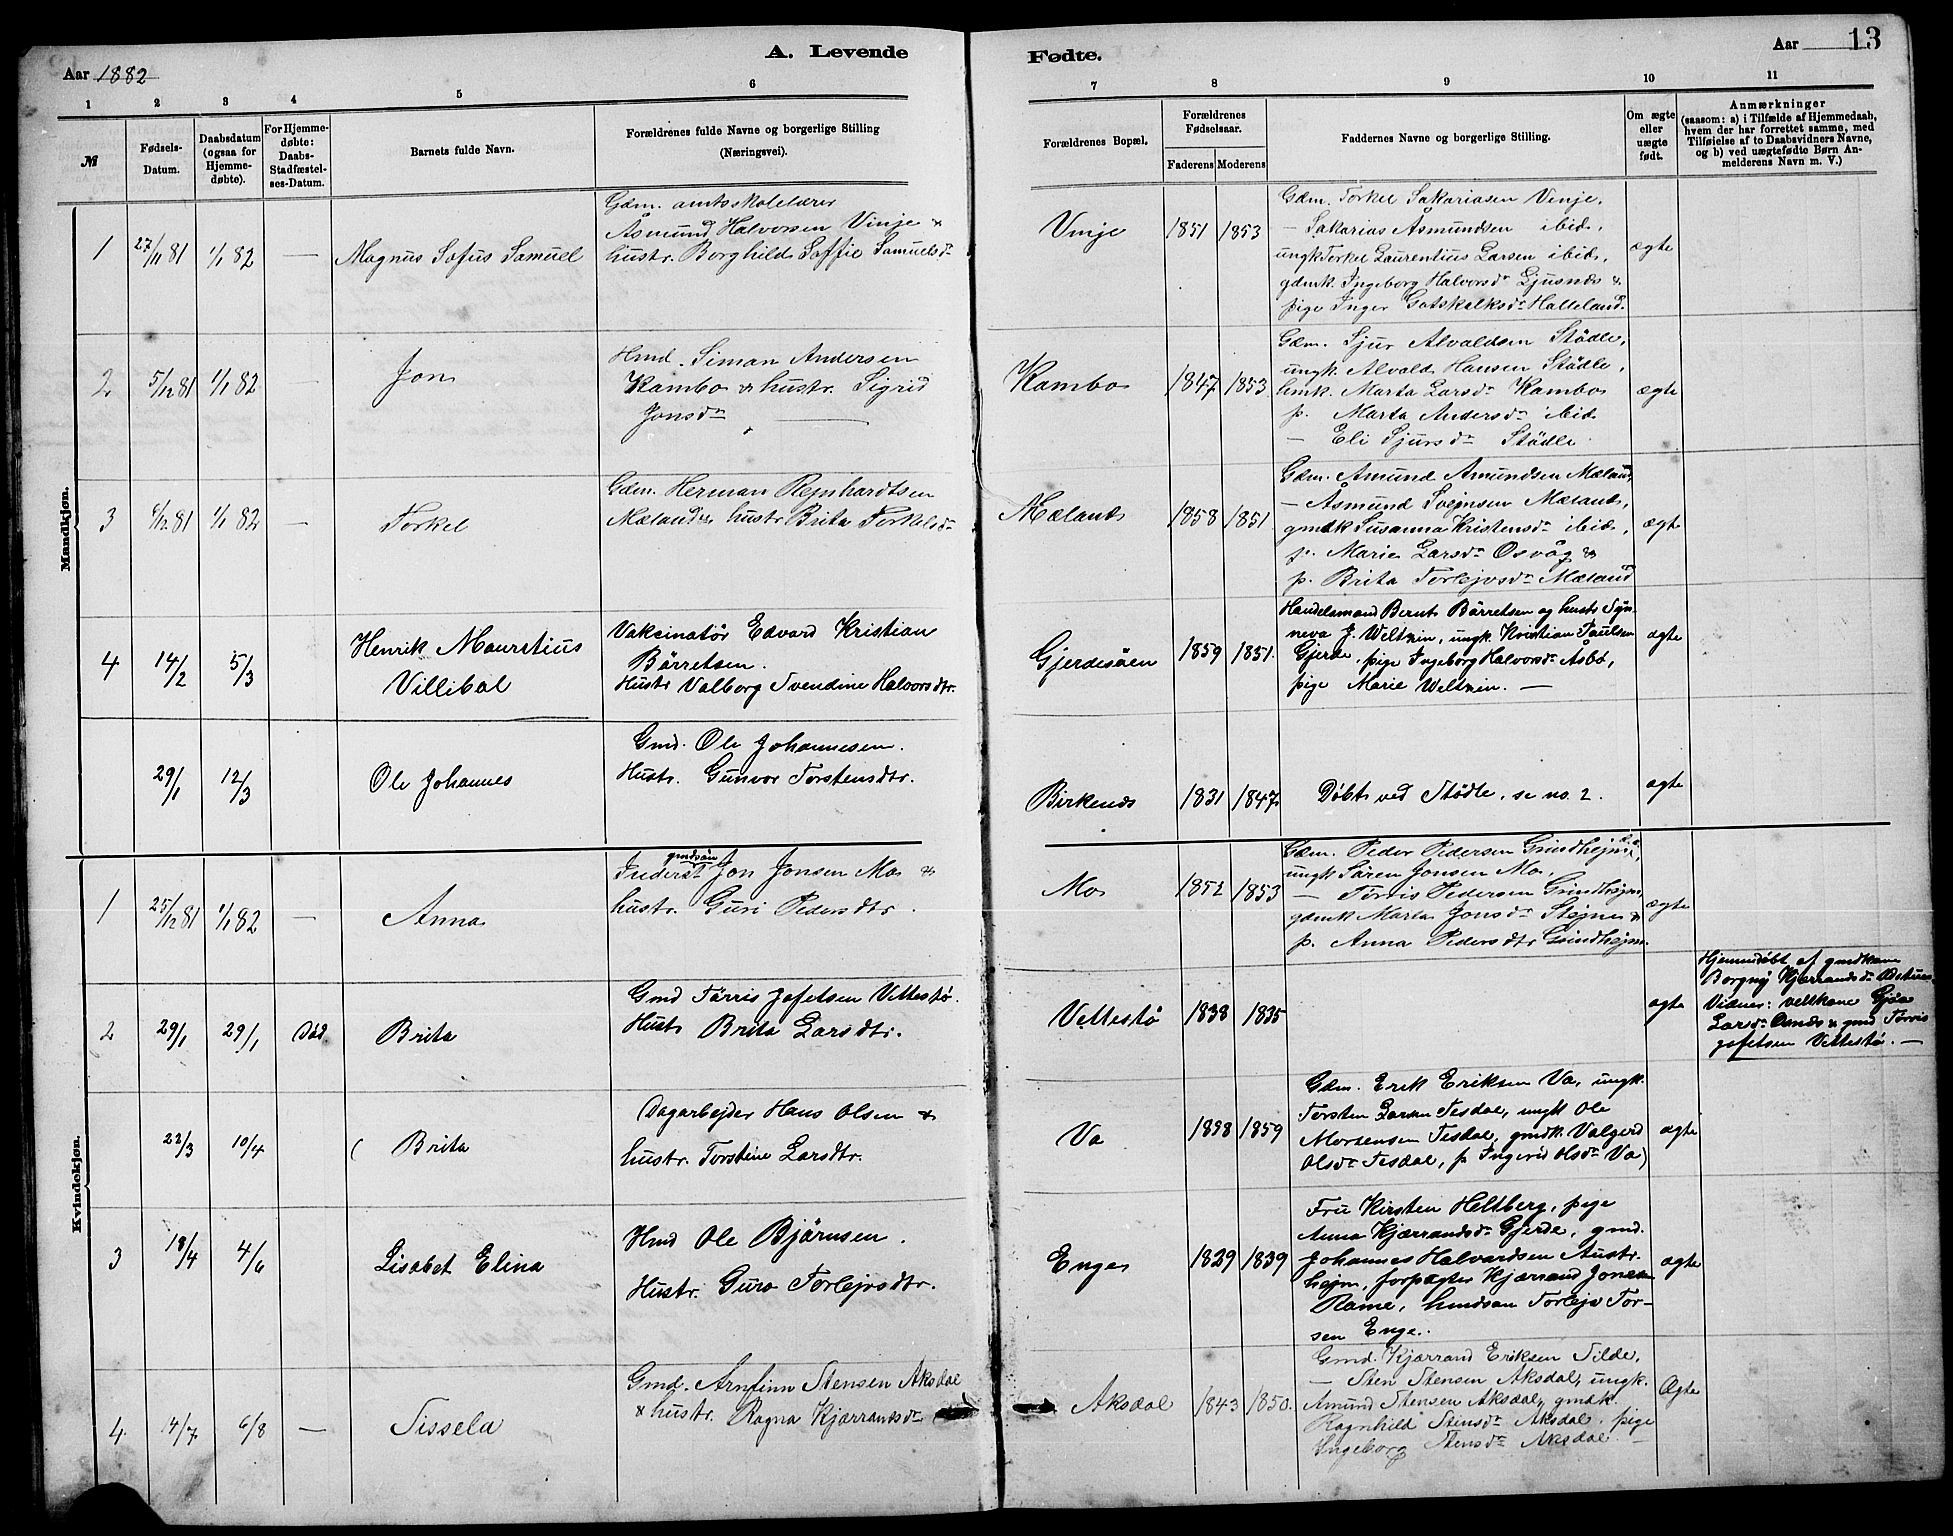 Aar 1882
A. Levende
Fødte.
Aar
13
1 2 3 4 5 6 7 8 9 10 11
№
Fødsels-
Datum.
Daabsdatum
(ogsaa for
Hjemme-
døbte).
For Hjemme-
døbte:
Daabs-
Stadfæstel-
ses-Datum.
Barnets fulde Navn.
Forældrenes fulde Navne og borgerlige Stilling
(Næringsvei).
Forældrenes Bopæl.
Forældrenes
Fødselsaar.
Faderens Moderens
Faddernes Navne og borgerlige Stilling.
Om ægte
eller
uægte
født.
Anmærkninger
(saasom: a) i Tilfælde af Hjemmedaab,
hvem der har forrettet samme, med
Tilføielse af to Daabsvidners Navne,
og b) ved uægtefødte Børn An-
melderens Navn m. V.)
Mandkjøn.
1 27/11 81 1/1 82 — Magnus Sofus Samuel
Gdm. amtsskolelærer
Åsmund Halvorsen Vinje &
hustr. Borghild Soffie Samuelsdr
Vinje 1851 1853
Gdm. Torkel Sakariasen Vinje,
— Sakarias Åsmundsen ibid,
ungk Torkel Laurentius Larsen ibid,
gdmk. Ingeborg Halvorsdr Ljusnes &
pige Inger Gotskalksdr Halleland.
ægte
2 5/12 81 1/1 82 — Jon
Hmd. Siman Andersen
Kambo & hustr. Sigrid
Jonsdr
Kambo 1847 1853
Gdm. Sjur Alvaldsen Stödle,
ungk. Alvald Hansen Stödle,
hmk. Marta Larsdr Kambo
p. Marta Andersdr ibid
— Eli Sjursdr Stödle
ægte
3 6/12 81 1/1 82 — Torkel
Gdm. Herman Rejnhardtsen
Mæland & hustr Brita Torkelsdr
Mæland 1858 1851
Gdm. Amund Amundsen Mæland,
— Åsmund Svejnsen Mæland,
gmdk Susanna Kristensdr ibid,
p. Marie Larsdr Osvåg &
p. Brita Torlejvsdr Mæland
ægte
4 14/2 5/3 Henrik Mauritius
Villibal
Vakcinatör Edvard Kristian
Börretsen.
Hustr Valborg Svendine Halvorsdtr.
Gjerdesöen 1859 1851.
Handelsmand Bernt Börretsen og hustr Syn-
neva J. Weltzin, ungk. Kristian Paulsen
Gjerde, pige Ingeborg Halvorsdr Åsbö,
pige Marie Weltzin. —
ægte
29/1 12/3 Ole Johannes
Gmd. Ole Johannesen.
Hustr. Gunvor Torstensdtr.
Birkenes 1831 1847
Döbt ved Stödle, se no. 2.
ægte
Kvindekjøn.
1 25/12 81 1/1 82 — Anna
gmdsön
Inderst Jon Jonsen Mo &
hustr. Guri Pedersdtr.
Mo 1852 1853
Gdm. Peder Pedersen Grindhejm,
ungk Sören Jonsen Mo,
— Torris Pedersen Grindhejm,
gdmk Marta Jonsdr Stejnes &
p. Anna Pedersdtr Grindhejm.
ægte
2 29/1 29/1 Död Brita
Gmd Törris Jofetsen Vettestö.
Hustr Brita Larsdtr.
Vettestö 1838 1835
ægte
Hjemmedöbt af gmdkone
Borgny Kjærrandsdr
Vidner: vellkone Gjöa
Larsdr & gmd Törris
Jofetsen Vettestö. —
22/3 10/4 ( Brita
Dagarbejder Hans Olsen &
hustr. Torstine Larsdtr.
Va 1858 1859
Gdm. Erik Eriksen Va, ungk.
Torsten Larsen Tesdal, ungk Ole
Mortensen Tesdal, gmdk. Valgerd
Olsdr Tesdal, p Ingerid Olsdr Va)
ægte
3 18/4 4/6 Lisabet Elina
Hmd Ole Bjørnsen.
Hustr. Guro Torlejvsdtr.
Enge 1829 1839
Fru Kirsten Heltberg, pige
Anna Kjærrandsdr Gjerde, gmd.
Johannes Halvardsen Austr-
hejm, forpagter Kjærrand Jonsen
Rame, hmdsøn Torlejv Tor-
sen Enge.
ægte
4 14/7 6/8 — Sissela
Gmd. Arnfinn Stensen Aksdal
& hustr. Ragna Kjærrandsdr
Aksdal 1843 1850.
Gmd. Kjærrand Eriksen Silde,
— Sten Stensen Aksdal, ungk.
Amund Stensen Aksdal, gmdk.
Ragnhild Stensdr Aksdal, pige
Ingeborg Stensdr Aksdal —
Ægte